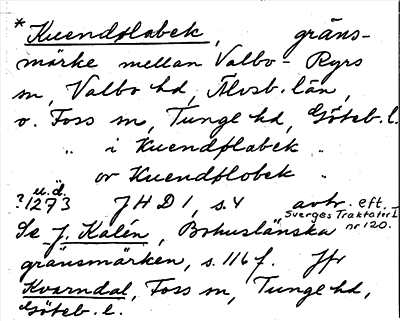 *Kuendølabek, gräns-
märke mellan Valbo-Ryrs
sn, Valbo hd, Älvsb. län,
o. Foss sn, Tunge hd, Göteb. l.
" i Kuendflabek "
or Kuendflobek "
u.d.
?1273 JHD 1, s. 4 avtr. eft.
Sverges Traktater I
Se J. Kalén, Bohuslänska nr 120.
gränsmärken, s. 116 f. Jfr
Kvarndal, Foss sn, Tunge hd,
Göteb. l.